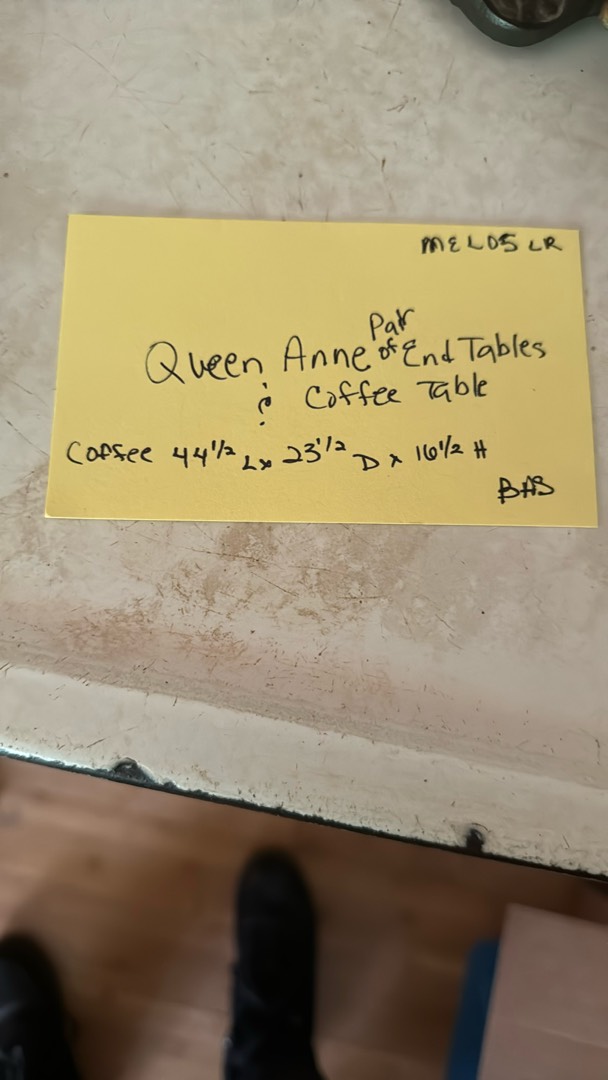 MEL05 LR
Pair
Queen Anne of End Tables
& Coffee Table
Coffee 44 1/2 L x 23 1/2 D x 16 1/2 H
BAS